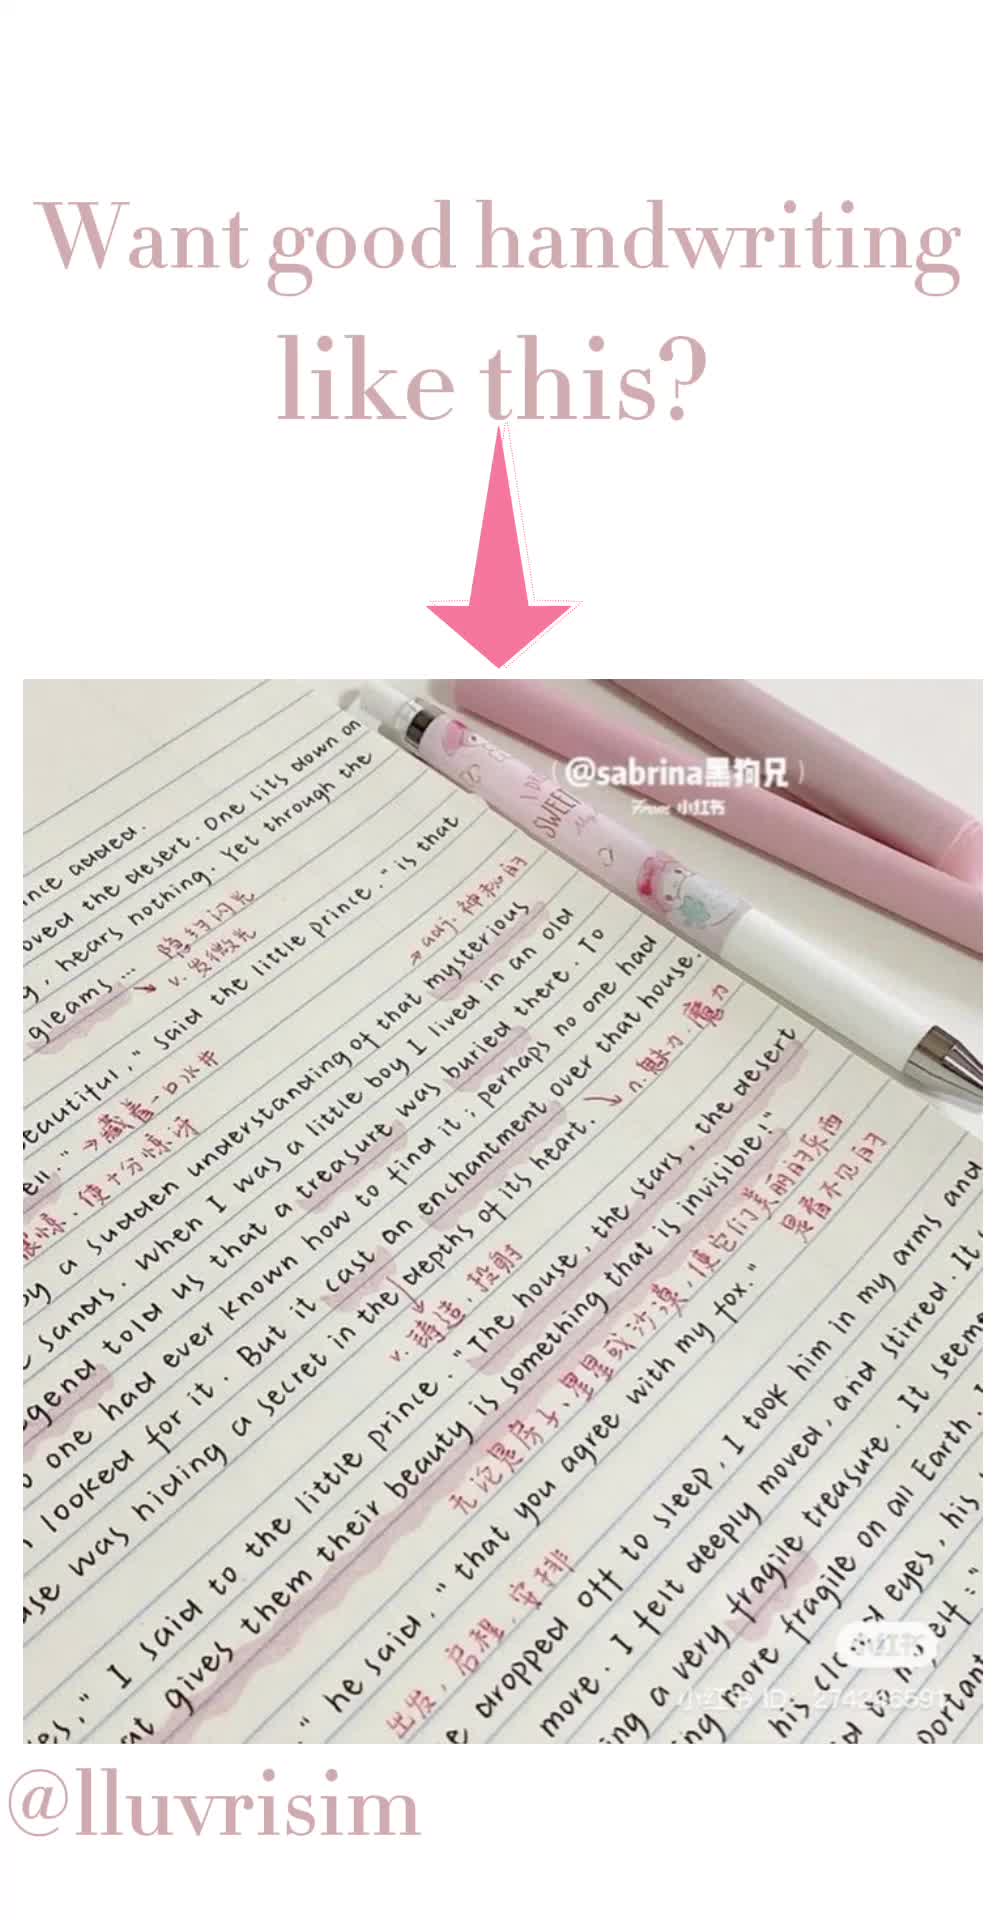 Want good handwriting
like this?
@sabrina黑狗兄
From 小红书
I DO
SWEET
My
nce added.
oved the desert. One sits down on
g, hears nothing. Yet through the
gleams... 隐约闪光
v. 发微光
eautiful," said the little prince. "is that
ell." → 藏着一口水井
使十分惊讶
adj. 神秘的
by a sudden understanding of that mysterious
sands. When I was a little boy I lived in an old
egend told us that a treasure was buried there. To
o one had ever known how to find it; perhaps no one had
n looked for it. But it cast an enchantment over that house.
n. 魅力. 魔力
use was hiding a secret in the depths of its heart.
v. 铸造, 投射
es," I said to the little prince. "The house, the stars, the desert
at gives them their beauty is something that is invisible!"
无论是房子、星星或沙漠, 使它们美丽的东西
是看不见的
" he said, "that you agree with my fox."
出发, 启程, 安排
e dropped off to sleep, I took him in my arms and
more. I felt deeply moved, and stirred. It
ng a very fragile treasure. It seeme
ng more fragile on all Earth.
his closed eyes, his
portant
小红书
小红书 ID:
@lluvrisim